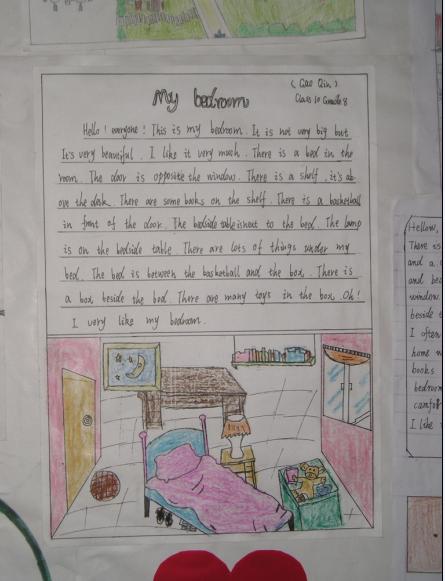 ( Gao Qin )
My bedroom
Class 10 Grade 8
Hello ! everyone ! This is my bedroom . It is not very big but
It's very beautiful . I like it very much . There is a bed in the
room . The door is opposite the window . There is a shelf , it's ab
ove the desk . There are some books on the shelf . There is a basketball
in front of the door . The bedside table is next to the bed . The lamp
is on the bedside table . There are lots of things under my
bed . The bed is between the basketball and the box . There is
a box beside the bed . There are many toys in the box . Oh !
I very like my bedroom .
Hellow,
There is
and a
and be
window
beside t
I often
home w
books
bedroom
I like